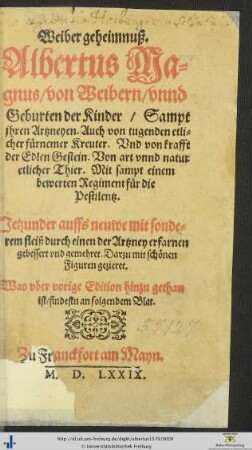 Weiber geheimnuß.
Albertus Ma-
gnus/von Weibern/vnnd
Geburten der Kinder / Sampt
jhren Artzneyen. Auch von tugenden etli-
cher fürnemer Kreuter. Vnd von krafft
der Edlen Gestein. Von art vnnd natur
etlicher Thier. Mit sampt einem
bewerten Regiment für die
Pestilentz.
Jetzunder auffs neuwe mit sonde-
rem fleiß durch einen der Artzney erfarnen
gebessert vnd gemehret. Darzu mit schönen
Figuren gezieret.
Was vber vorige Edition hinzu gethan
ist/findestu an folgendem Blat.
Zu Franckfort am Mayn.
M. D. LXXIX.
© Universitätsbibliothek Freiburg